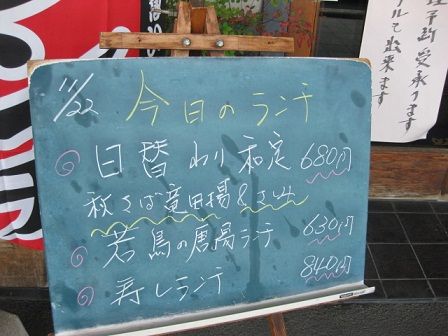 11/22 今日のランチ
日替わり和定 680円
秋さば竜田揚&さしみ
若鳥の唐揚ランチ 630円
寿しランチ 840円
予約 受承ります
ルで出来ます